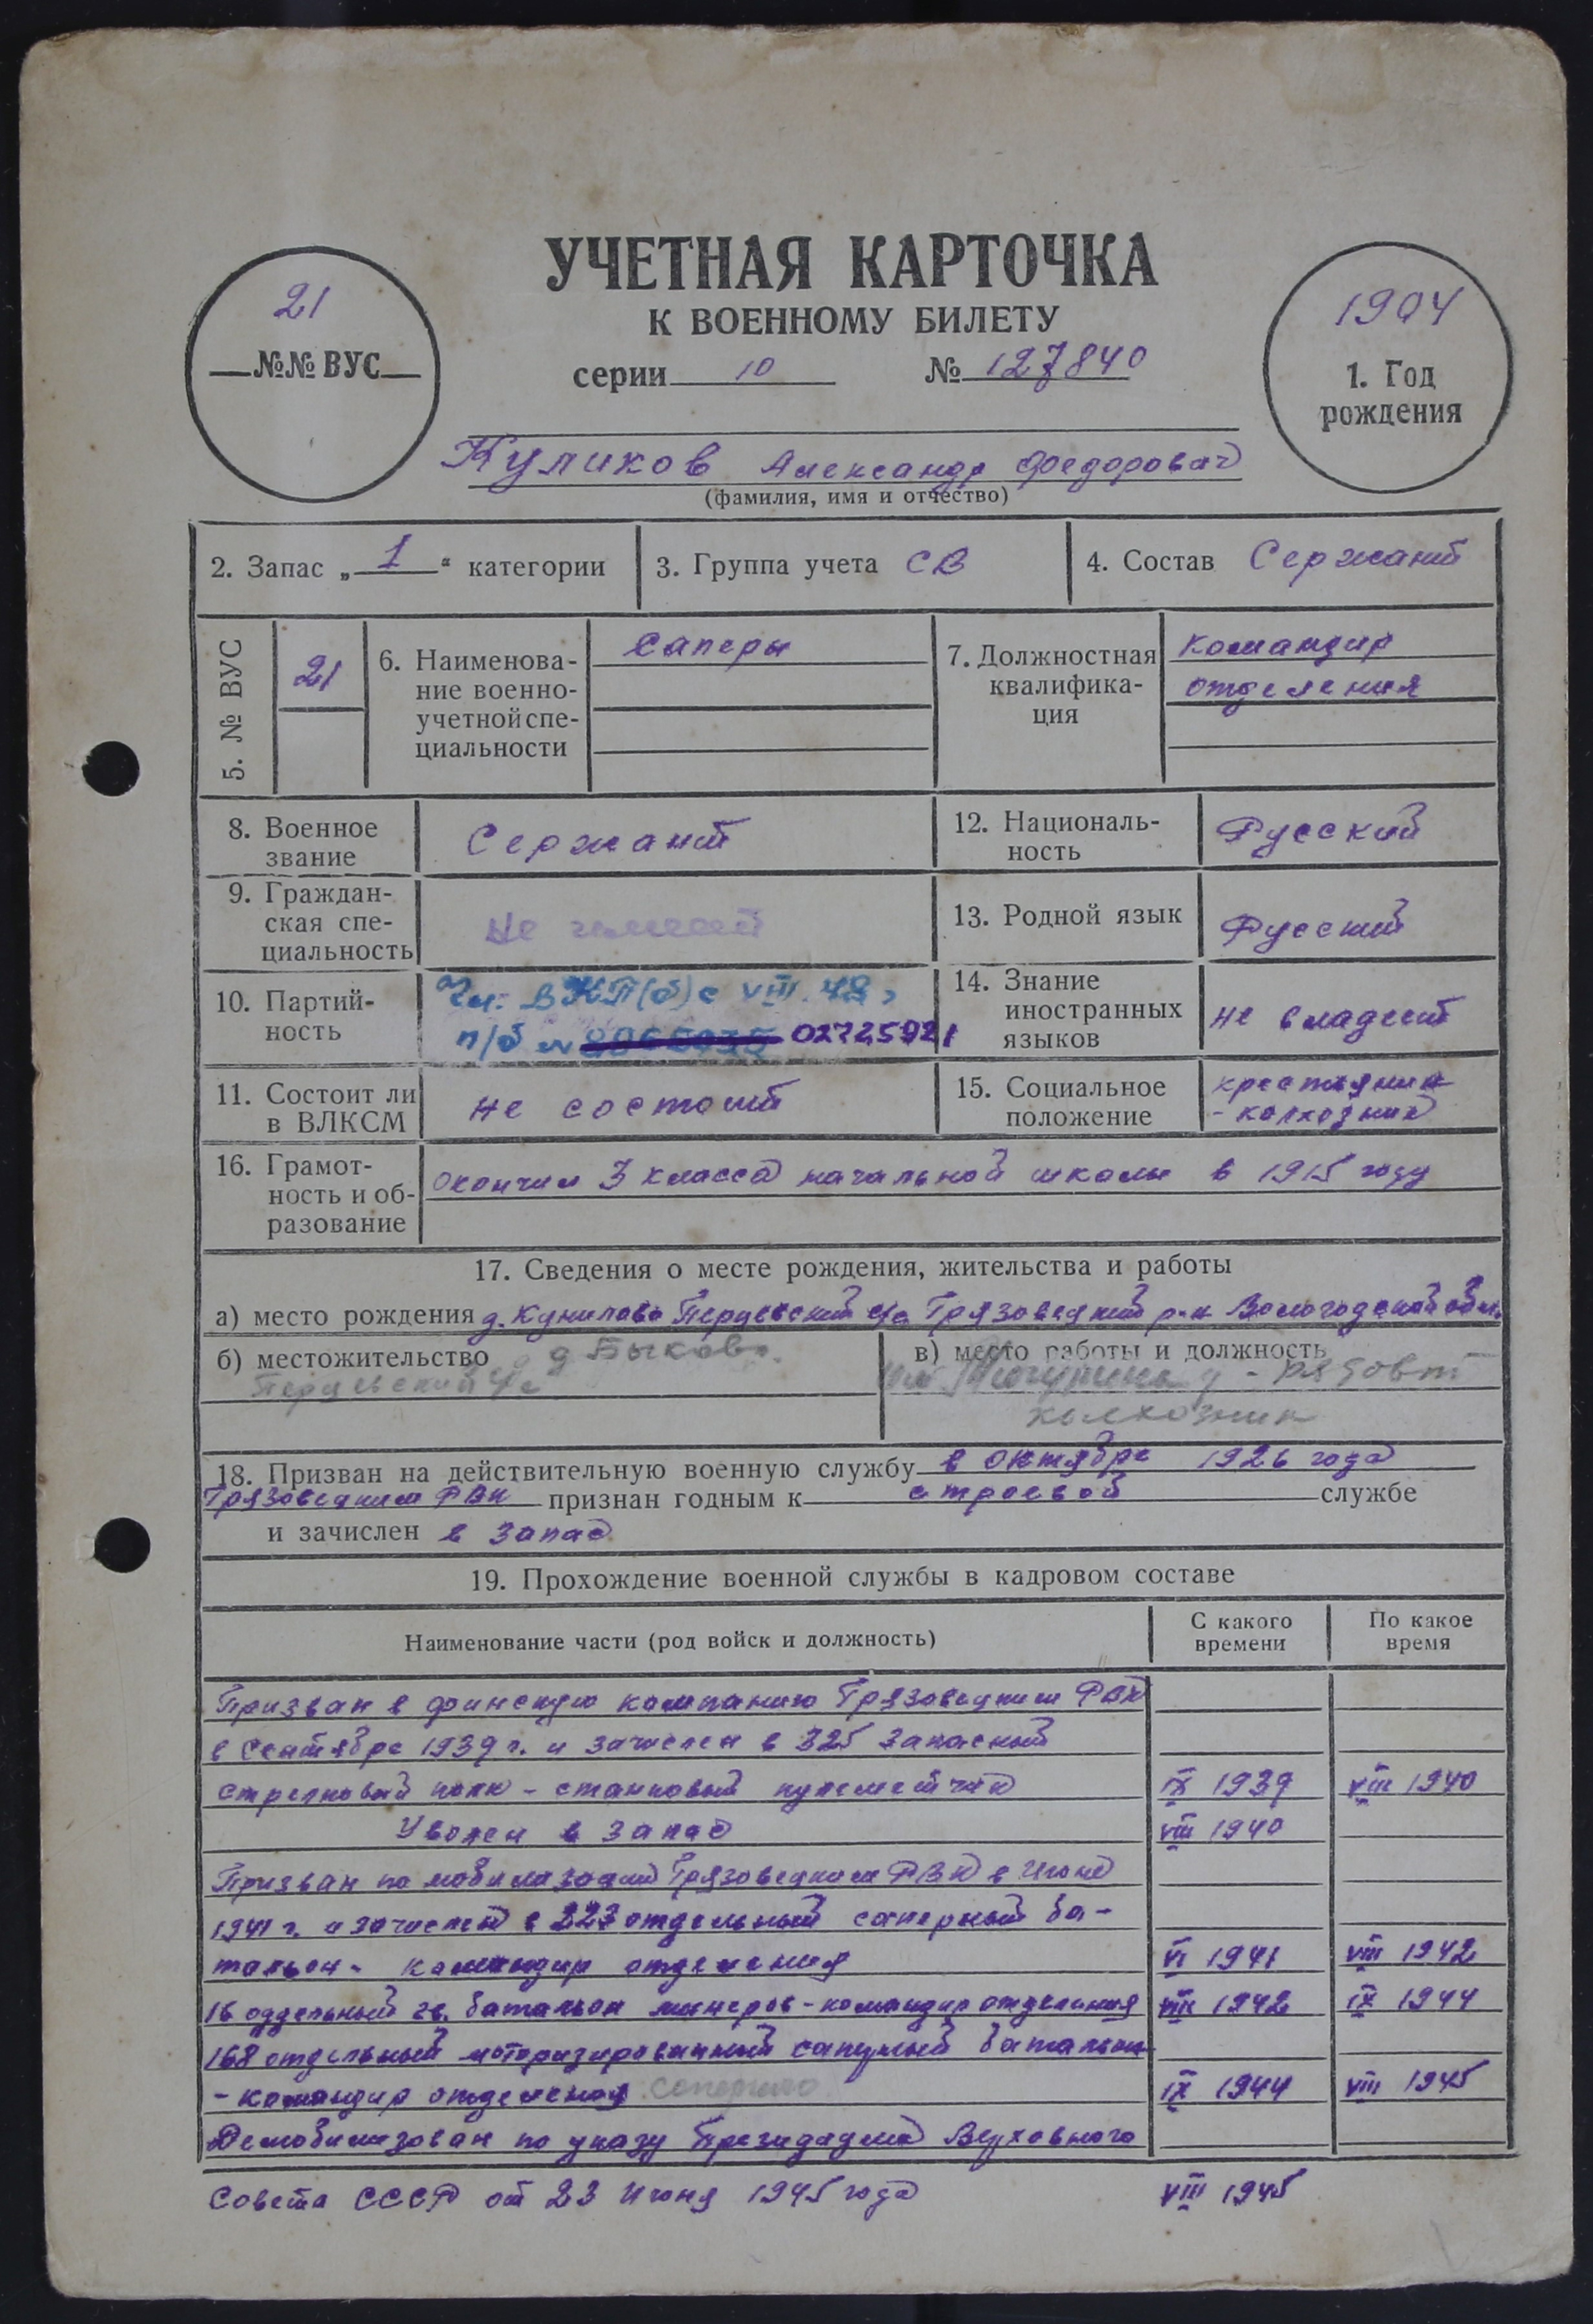 УЧЕТНАЯ КАРТОЧКА
К ВОЕННОМУ БИЛЕТУ
серии 10 № 127840
21
№№ ВУС
1904
1. Год
рождения
Куликов Александр Федорович
(фамилия, имя и отчество)
2. Запас „ 1 “ категории
3. Группа учета СВ
4. Состав Сержант
5. № ВУС
21
6. Наименова-
ние военно-
учетной спе-
циальности
Саперы
7. Должностная
квалифика-
ция
командир
отделения
8. Военное
звание
Сержант
12. Националь-
ность
Русский
9. Граждан-
ская спе-
циальность
Не имеет
13. Родной язык
Русский
10. Партий-
ность
Чл. ВКП(б) с VIII. 42 г
п/б № 02725921
14. Знание
иностранных
языков
не владеет
11. Состоит ли
в ВЛКСМ
не состоит
15. Социальное
положение
крестьянин
- колхозник
16. Грамот-
ность и об-
разование
окончил 3 класса начальной школы в 1915 году
17. Сведения о месте рождения, жительства и работы
а) место рождения д. Перцевский с/с Грязовецкий р-н Вологодской обл.
б) местожительство д Быково.
Перцевский с/с
в) место работы и должность
- рядовой
колхозник
18. Призван на действительную военную службу в октябре 1926 года
Грязовецким РВК признан годным к строевой службе
и зачислен в запас
19. Прохождение военной службы в кадровом составе
Наименование части (род войск и должность)
С какого
времени
По какое
время
Призван в финскую компанию Грязовецким РВК
в Сентябре 1939 г. и зачислен в 325 запасный
стрелковый полк - станковый пулеметчик IX 1939 VIII 1940
Уволен в запас VIII 1940
Призван по мобилизации Грязовецким РВК в Июне
1941 г. и зачислен в 223 отдельный саперный ба-
тальон - командир отделения VI 1941 VIII 1942
16 оддельный гв. батальон минеров - командир отделения VIII 1942 IX 1944
168 отдельный моторизированный батальон
- командир отделения саперного IX 1944 VIII 1945
Демобилизован по указу Верховного
Совета СССР от 23 Июня 1945 года VIII 1945